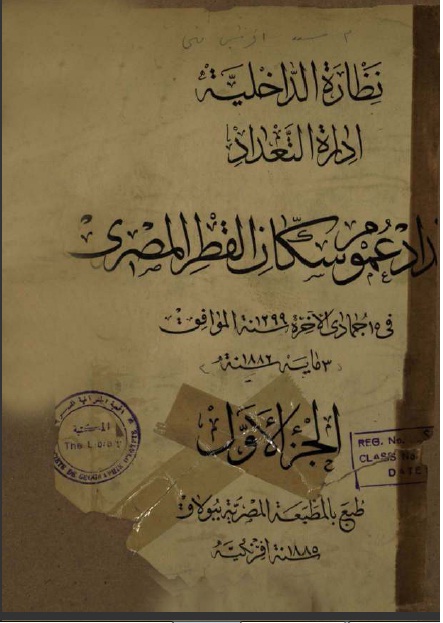 نظارة الداخلية
ادارة التعداد
داد عموم سكان القطر المصرى
فى ١٥ جمادى الآخرة سنة ١٢٩٩ الموافق
٣ مايه سنة ١٨٨٢
الجزء الاول
المكتبة
The Library
REG. No.
CLASS No.
DATE
طبع بالمطبعة المصرية ببولاق
سنة ١٨٨٥ افرنكية